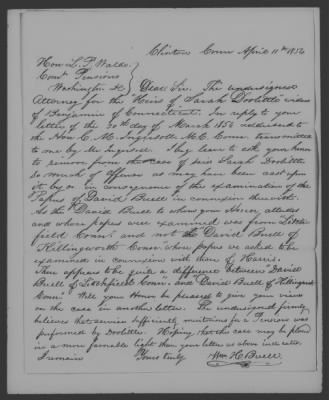 Clinton Conn April 11th 1854
Hon L. P. Waldo
Comr Pensions
Washington
Dear Sir. The undersigned
Attorney for the "Heirs of Sarah Doolittle widow
of Benjamin of Connecticut. In reply to your
letter of the 30th day of March 1854 addressed to
the Hon C. M. Ingersoll M.C. Conn transmitted
to me by Mr Ingersoll. I beg leave to ask your honor
to remove from the case of said Sarah Doolittle
so much of as may have been cast upon
it by or in consequence of the examination of the
Papers of David Buell in connexion therewith.
As the David Buell to whom your Honor
and whose papers were examined was from Litch
field Conn" and not the David Buell of
Killingworth Conn" whose papers we asked to be
examined in connexion with these of Heirs.
There appears to be quite a difference between David
Buell of Litchfield Conn. and David Buell of Killingworth
Conn" Will your Honor be pleased to give your views
on the case in another letter. The undersigned firmly
believes that service sufficiently for a Pension was
performed by Doolittle. Hoping that this case may be placed
in a more favorable light than your letter as above
I remain Yours truly
Wm H. Buell